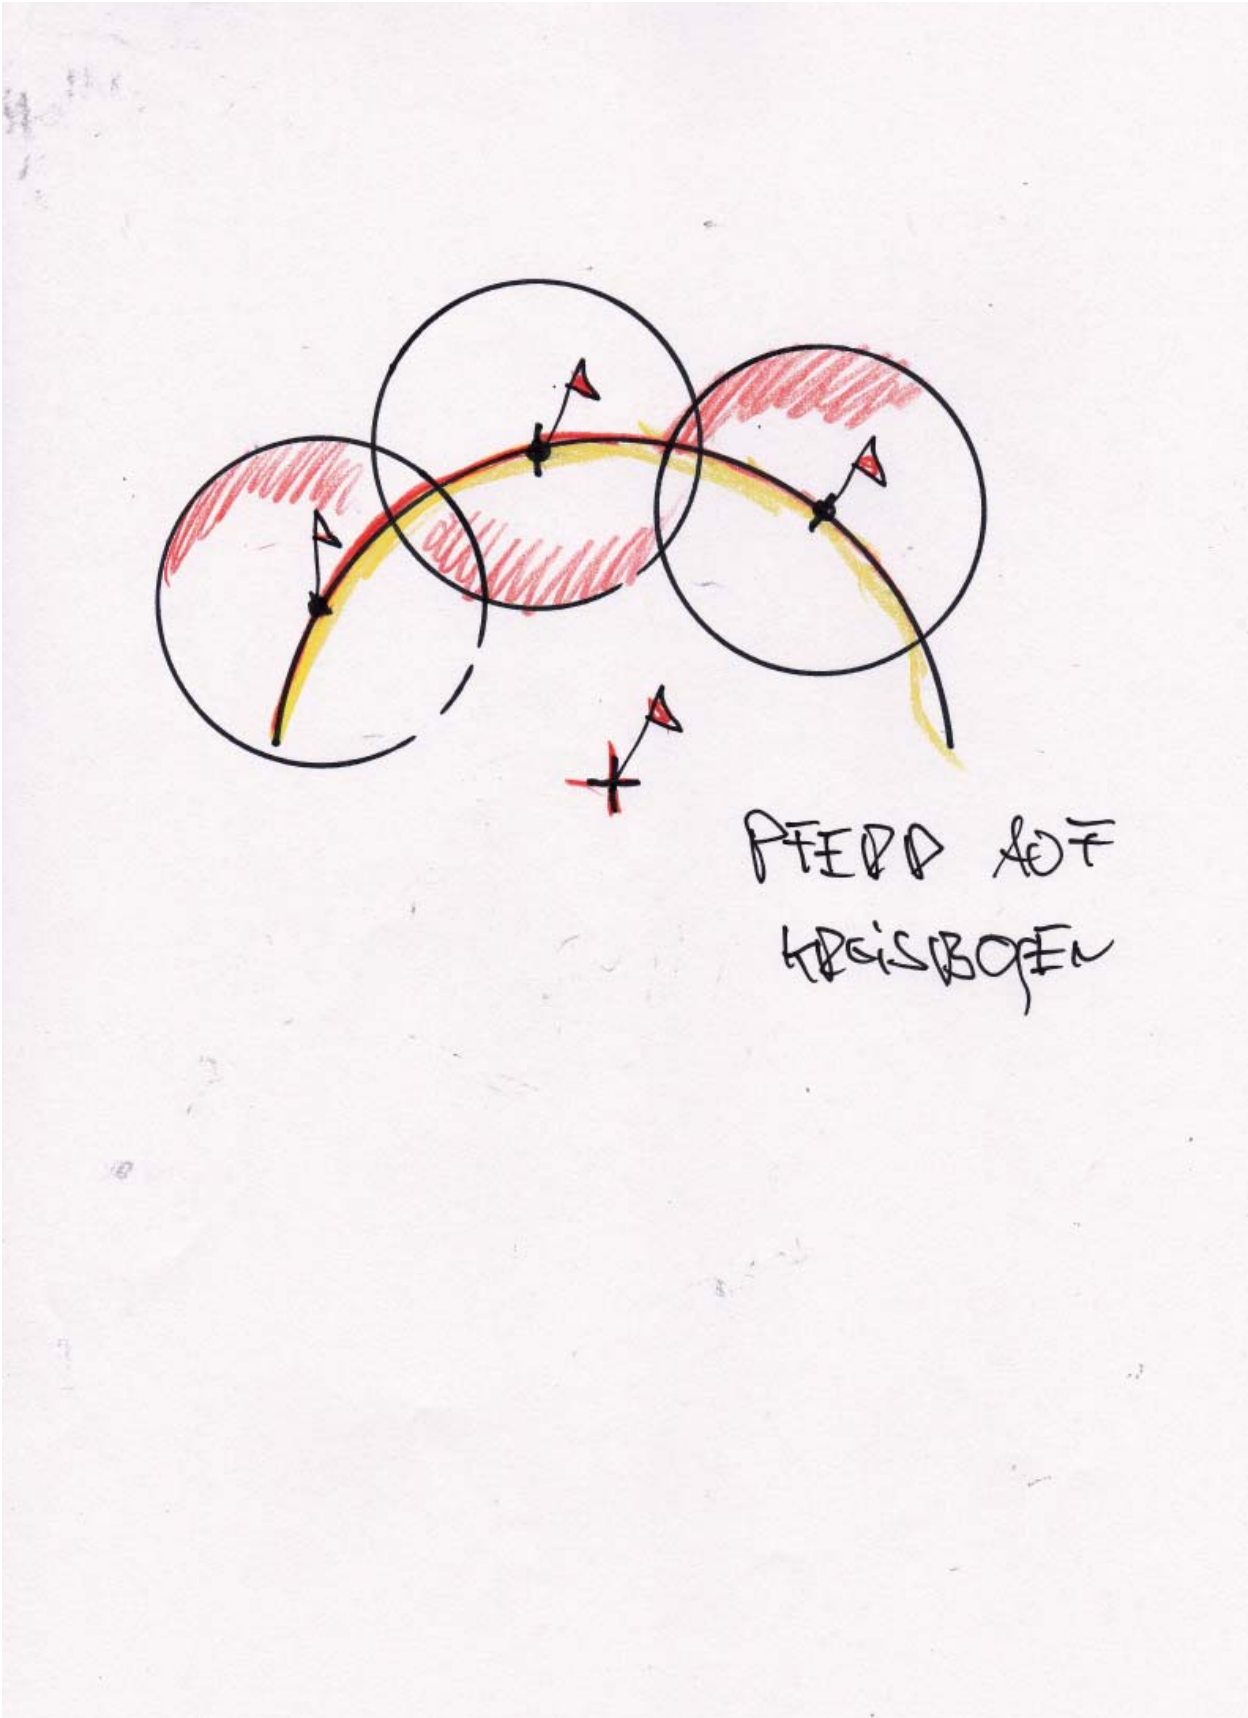 PFERD AUF
KREiSBOGEN